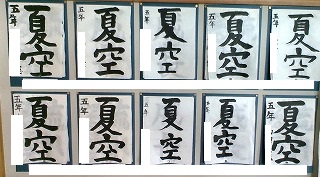 夏空
五年
夏空
五年
夏空
五年
夏空
五年
夏空
五年
夏空
五年
夏空
五年
夏空
五年
夏空
五年
夏空
五年